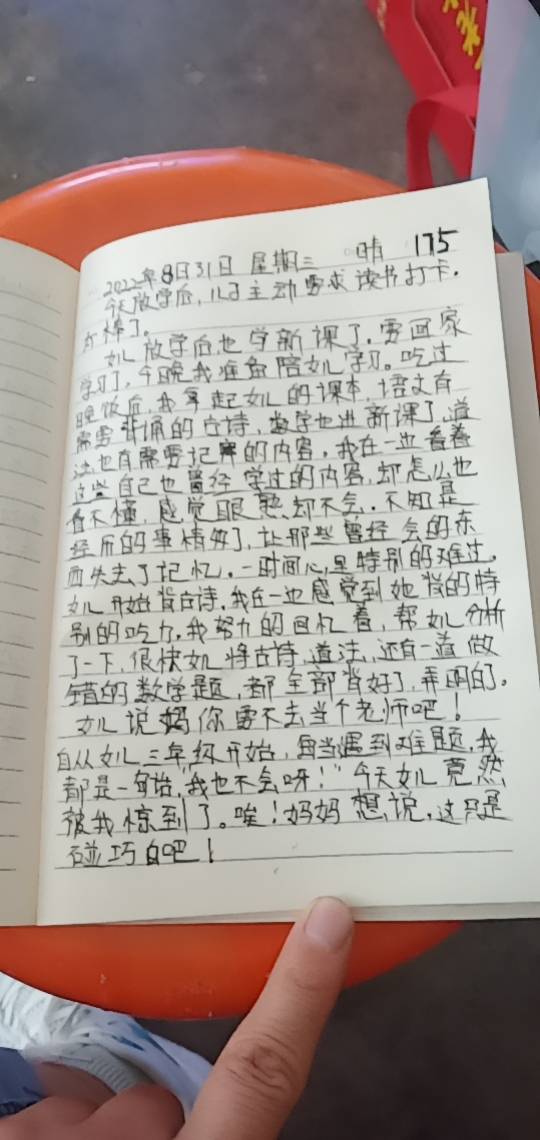 2022年8月31日 星期三 晴 175
今天放学后,儿子主动要求读书打卡。
太棒了。
女儿放学后也学新课了,要回家
学习了,今晚我准备陪女儿学习。吃过
晚饭后,我拿起女儿的课本,语文有
需要背诵的古诗,数学也进新课了,道
法也有需要记库的内容,我在一边看着
这些自己也曾经学过的内容,却怎么也
看不懂,感觉眼熟却不会。不知是
经历的事情多了,让那些曾经会的东
西失去了记忆。一时间心里特别的难过。
女儿开始背古诗,我在一边感觉到她背的特
别的吃力,我努力的回忆着,帮女儿分析
了一下,很快女儿将古诗,道法,还有一道做
错的数学题,都全部背好了,弄明的。
女儿说妈你要不去当个老师吧!
自从女儿三年级开始,每当遇到难题,我
都是一句话"我也不会呀!"今天女儿竟然
被我惊到了。唉!妈妈想说,这只是
碰巧白吧!